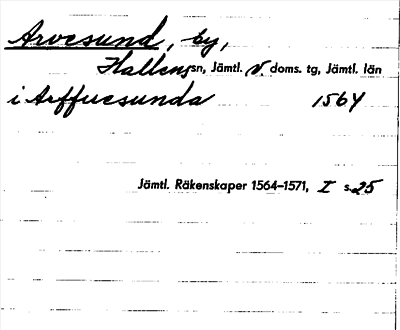 Arvesund, by,
Hallens sn, Jämtl. v. doms. tg, Jämtl. län
i Arffuesunda 1564
Jämtl. Räkenskaper 1564-1571, I s. 25